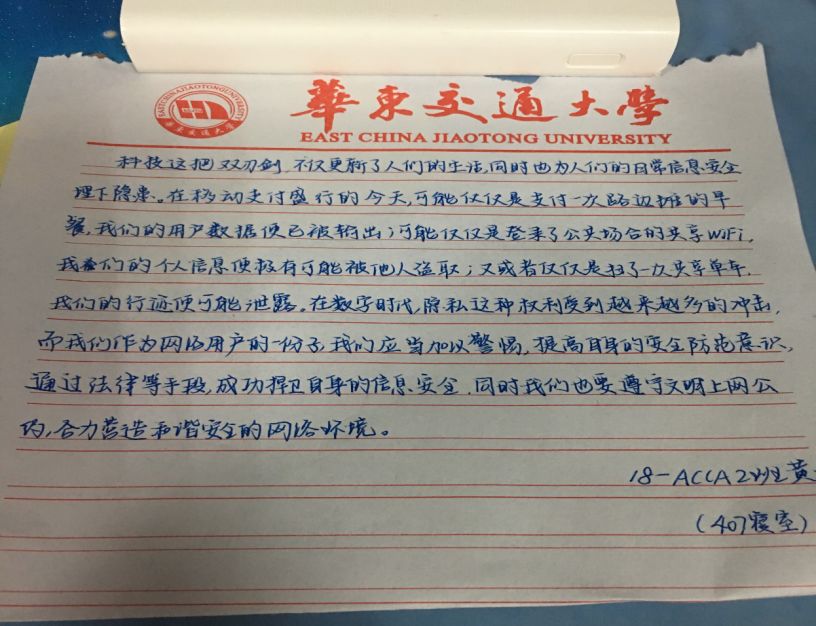 華東交通大學
EAST CHINA JIAOTONG UNIVERSITY
科技这把双刃剑,不仅更新了人们的生活,同时也为人们的日常信息安全
埋下隐患。在移动支付盛行的今天,可能仅仅是支付一次路边摊的早
餐,我们的用户数据便已被输出;可能仅仅是登录了公共场合的共享WiFi,
我们的个人信息便极有可能被他人盗取;又或者仅仅是扫了一次共享单车,
我们的行迹便可能泄露。在数字时代,隐私这种权利受到越来越多的冲击,
而我们作为网络用户的一份子,我们应当加以警惕,提高自身的安全防范意识,
通过法律等手段,成功捍卫自身的信息安全,同时我们也要遵守文明上网公
约,合力营造和谐安全的网络环境。
18-ACCA2班黄
(407寝室)